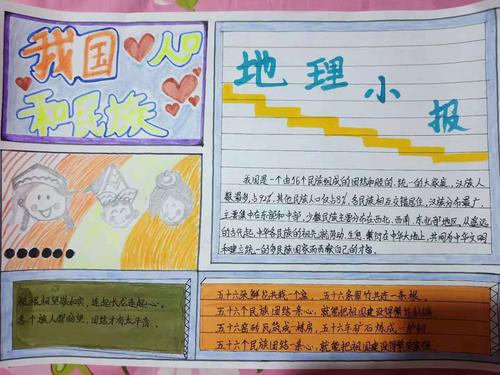 我国人口
和民族
地理小报
我国是一个由56个民族组成的团结和睦的、统一的大家庭，汉族人
数最多，占92%，其他民族人口仅占8%，各民族相互交错居住，汉族分布最广，
主要集中在东部和中部，少数民族主要分布在西北、西南、东北部地区。从遥远
的古代起，中华各民族的祖先就劳动、生息、繁衍在中华大地上，共同为中华文明
和建立统一的多民族国家而贡献自己的才智。
连起长龙连起心。
各个族人都盼望，团结才有太平音。
五十六朵鲜花共栽一个盆，五十六条翠竹共连一条根。
五十六个民族团结一条心，就能把祖国建设得繁荣
五十六窑砖瓦筑成一幢房，五十六车矿石炼成一炉钢
五十六个民族团结一条心，就能把祖国建设得繁荣富强。